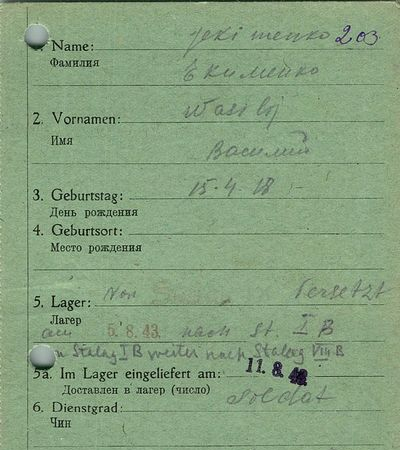 Jekimenko 203
1. Name:
Фамилия
Екименко
2. Vornamen: Wasilij
Имя
Василий
3. Geburtstag: 15.4.18
День рождения
4. Geburtsort:
Место рождения
5. Lager: Von Versetzt
Лагер
am 5.8.43 nach St. I B
Stalag I B weiter nach Stalag VIII B
5a. Im Lager eingeliefert am: 11.8.43
Доставлен в лагер (число)
6. Dienstgrad: Soldat
Чин